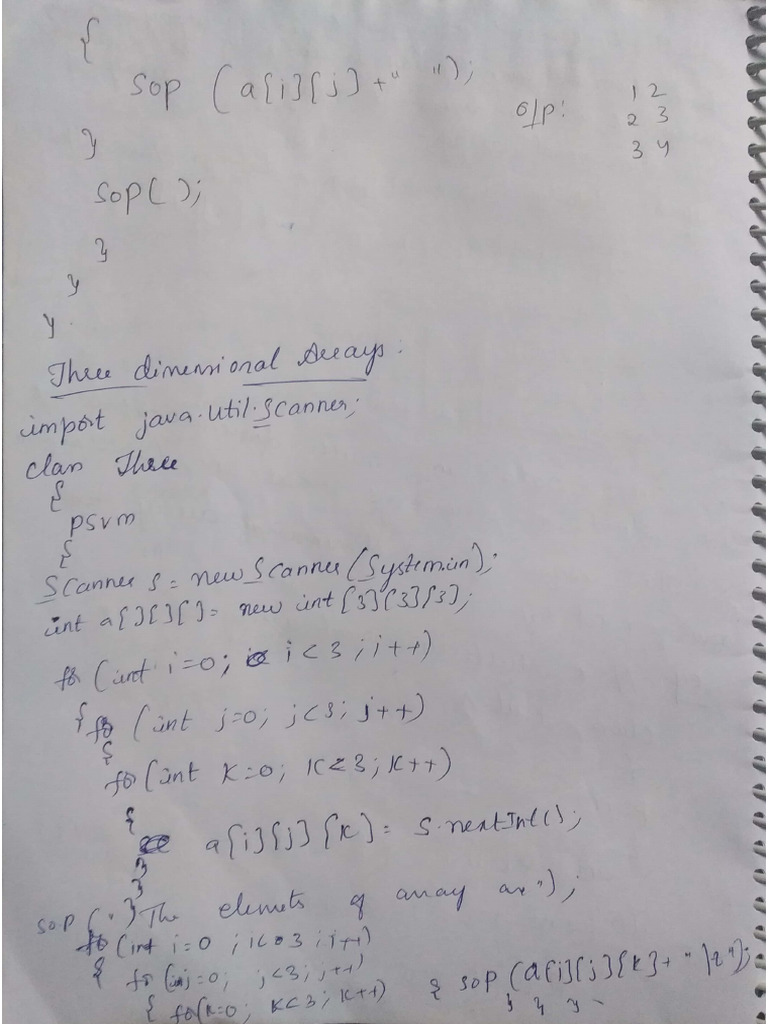 {
sop (a[i][j]+" ");
o/p: 1 2
2 3
3 4
}
sop( );
}
}
}
Three dimensional Arrays:
import java.util.Scanner;
class Three
{
psvm
{
Scanner s = new Scanner(System.in);
int a[][][]= new int [3][3][3];
for (int i=0; i<3; i++)
{ for (int j=0; j<3; j++)
{
for (int k=0; k<3; k++)
{
a[i][j][k]= s.nextInt();
}
}
}
sop (" The elemets of array are");
for (int i=0; i<3; i++)
{ for (int j=0; j<3; j++)
{ for(k=0; k<3; k++) { sop (a[i][j][k]+ "
} } }